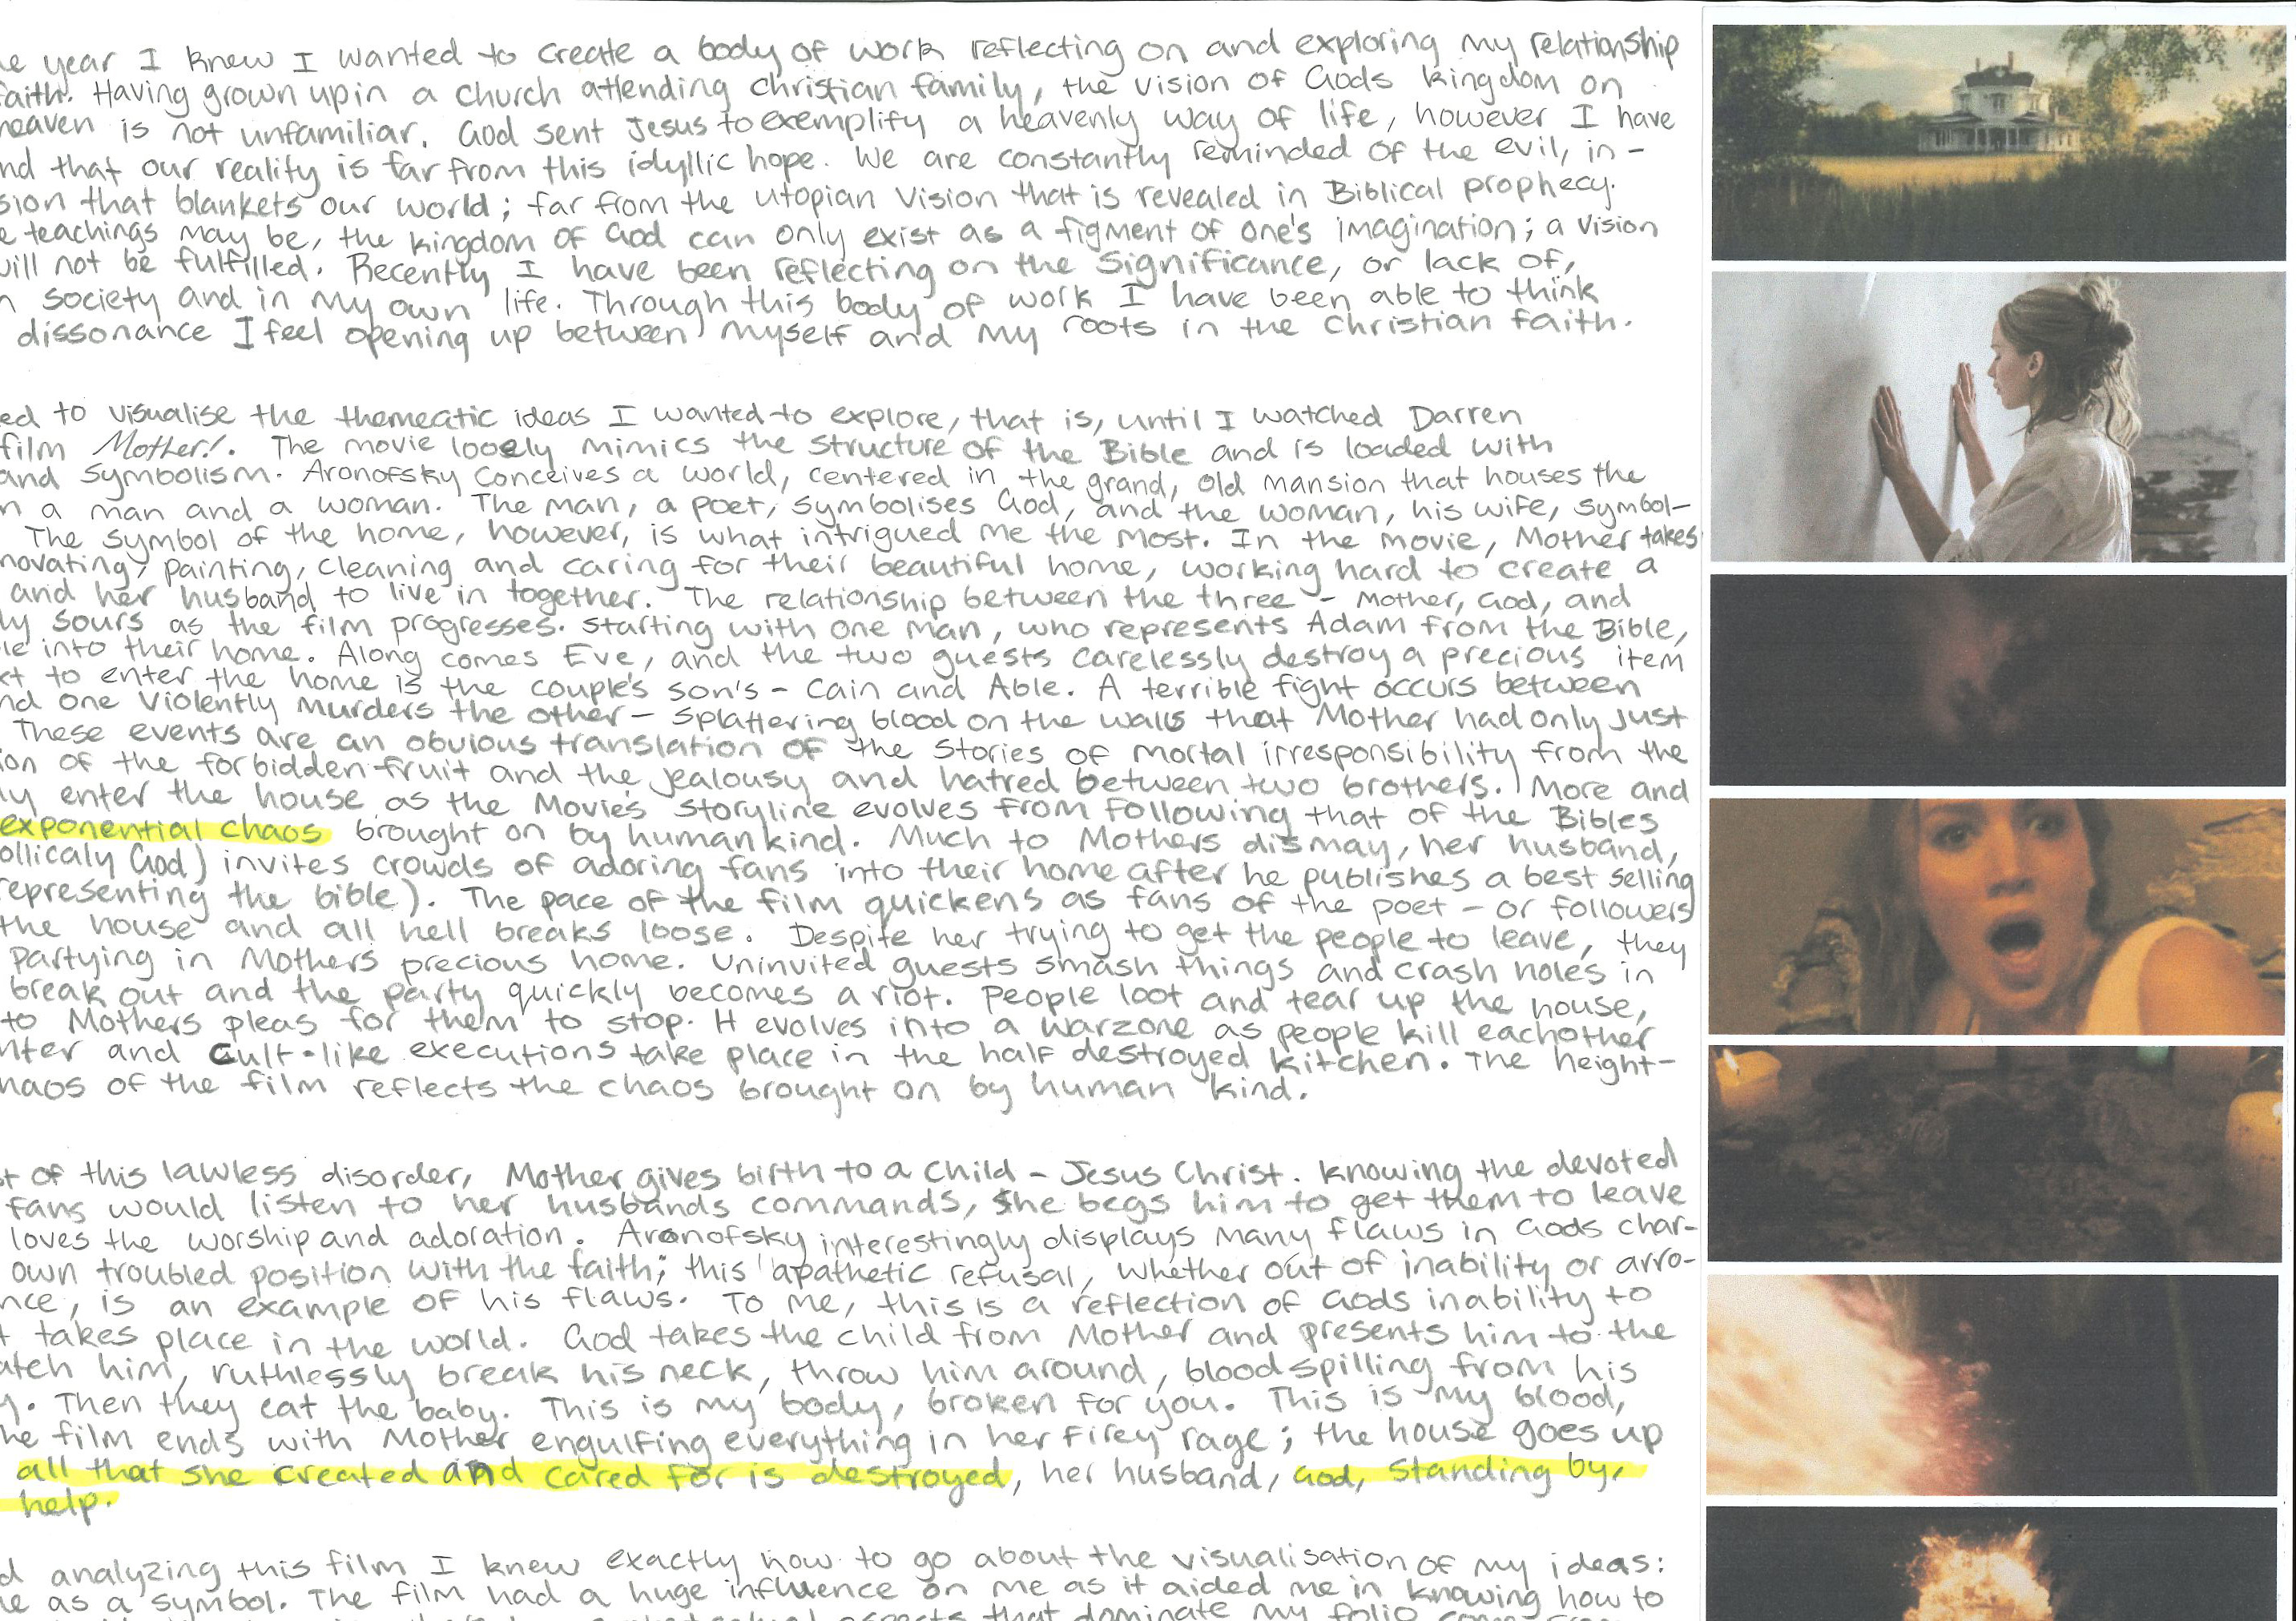 e year I knew I wanted to create a body of work reflecting on and exploring my relationship
faith. Having grown up in a church attending christian family, the vision of Gods kingdom on
heaven is not unfamiliar. God sent Jesus to exemplify a heavenly way of life, however I have
nd that our reality is far from this idyllic hope. We are constantly reminded of the evil, in-
sion that blankets our world; far from the utopian vision that is revealed in Biblical prophecy.
e teachings may be, the kingdom of God can only exist as a figment of one's imagination; a vision
will not be fulfilled. Recently I have been reflecting on the significance, or lack of,
n society and in my own life. Through this body of work I have been able to think
dissonance I feel opening up between myself and my roots in the Christian faith.
ed to visualise the themeatic ideas I wanted to explore, that is, until I watched Darren
film Mother!. The movie loosely mimics the structure of the Bible and is loaded with
and symbolism. Aronofsky conceives a world, centered in the grand, old mansion that houses the
n a man and a woman. The man, a poet, symbolises God, and the woman, his wife, symbol-
The symbol of the home, however, is what intrigued me the most. In the movie, Mother takes
novating, painting, cleaning and caring for their beautiful home, working hard to create a
and her husband to live in together. The relationship between the three - Mother, God, and
ly sours as the film progresses. Starting with one man, who represents Adam from the Bible,
le into their home. Along comes Eve, and the two guests carelessly destroy a precious item
xt to enter the home is the couple's son's - Cain and Able. A terrible fight occurs between
nd one violently murders the other - splattering blood on the walls that Mother had only just
These events are an obvious translation of the stories of mortal irresponsibility from the
ion of the forbidden fruit and the jealousy and hatred between two brothers. More and
ly enter the house as the movies storyline evolves from following that of the Bibles
exponential chaos brought on by humankind. Much to Mothers dismay, her husband,
ollicaly God) invites crowds of adoring fans into their home after he publishes a best selling
representing the bible). The pace of the film quickens as fans of the poet - or followers
the house and all hell breaks loose. Despite her trying to get the people to leave, they
partying in Mothers precious home. Uninvited guests smash things and crash holes in
break out and the party quickly becomes a riot. People loot and tear up the house,
to Mothers pleas for them to stop. It evolves into a warzone as people kill eachother
nter and cult-like executions take place in the half destroyed kitchen. The height-
haos of the film reflects the chaos brought on by human kind.
st of this lawless disorder, Mother gives birth to a child - Jesus Christ. Knowing the devoted
fans would listen to her husbands commands, she begs him to get them to leave
loves the worship and adoration. Aronofsky interestingly displays many flaws in Gods char-
own troubled position with the faith; this apathetic refusal, whether out of inability or arro-
nce, is an example of his flaws. To me, this is a reflection of Gods inability to
t takes place in the world. God takes the child from Mother and presents him to the
atch him, ruthlessly break his neck, throw him around, blood spilling from his
y. Then they eat the baby. This is my body, broken for you. This is my blood,
he film ends with Mother engulfing everything in her firey rage; the house goes up
all that she created and cared for is destroyed, her husband, God, standing by,
help.
d analyzing this film I knew exactly how to go about the visualisation of my ideas:
e as a symbol. The film had a huge influence on me as it aided me in knowing how to
aspects that dominate my folio